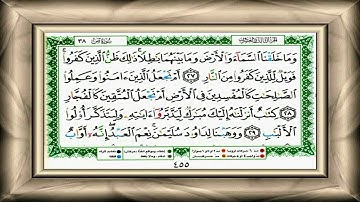 سورة ص ٣٨
وَمَا خَلَقْنَا ٱلسَّمَآءَ وَٱلْأَرْضَ وَمَا بَيْنَهُمَا بَٰطِلًا ذَٰلِكَ ظَنُّ ٱلَّذِينَ كَفَرُوا۟
فَوَيْلٌ لِّلَّذِينَ كَفَرُوا۟ مِنَ ٱلنَّارِ ٢٧ أَمْ نَجْعَلُ ٱلَّذِينَ ءَامَنُوا۟ وَعَمِلُوا۟
ٱلصَّٰلِحَٰتِ كَٱلْمُفْسِدِينَ فِى ٱلْأَرْضِ أَمْ نَجْعَلُ ٱلْمُتَّقِينَ كَٱلْفُجَّارِ ٢٨
كِتَٰبٌ أَنزَلْنَٰهُ إِلَيْكَ مُبَٰرَكٌ لِّيَدَّبَّرُوٓا۟ ءَايَٰتِهِۦ وَلِيَتَذَكَّرَ أُو۟لُوا۟
ٱلْأَلْبَٰبِ ٢٩ وَوَهَبْنَا لِدَاوُۥدَ سُلَيْمَٰنَ نِعْمَ ٱلْعَبْدُ إِنَّهُۥٓ أَوَّابٌ
٤٥٥